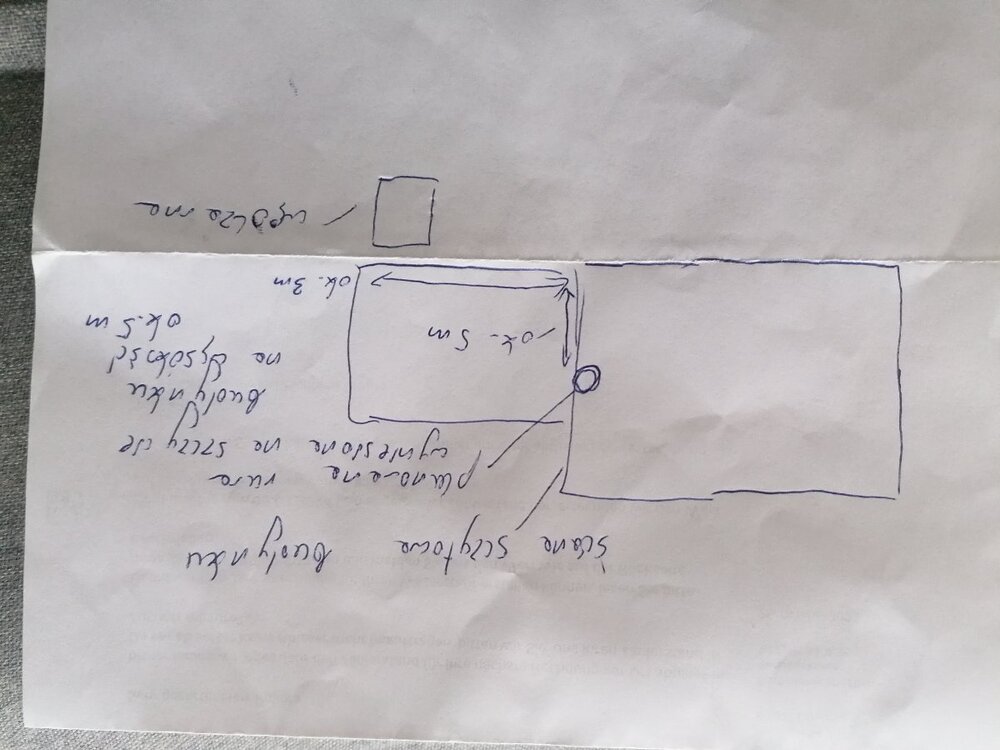 ściana szczytowa budynku
planowana rura
wyniesiona na szczycie
budynku
na wysokość
ok. 5 m
ok. 5 m
ok. 3m